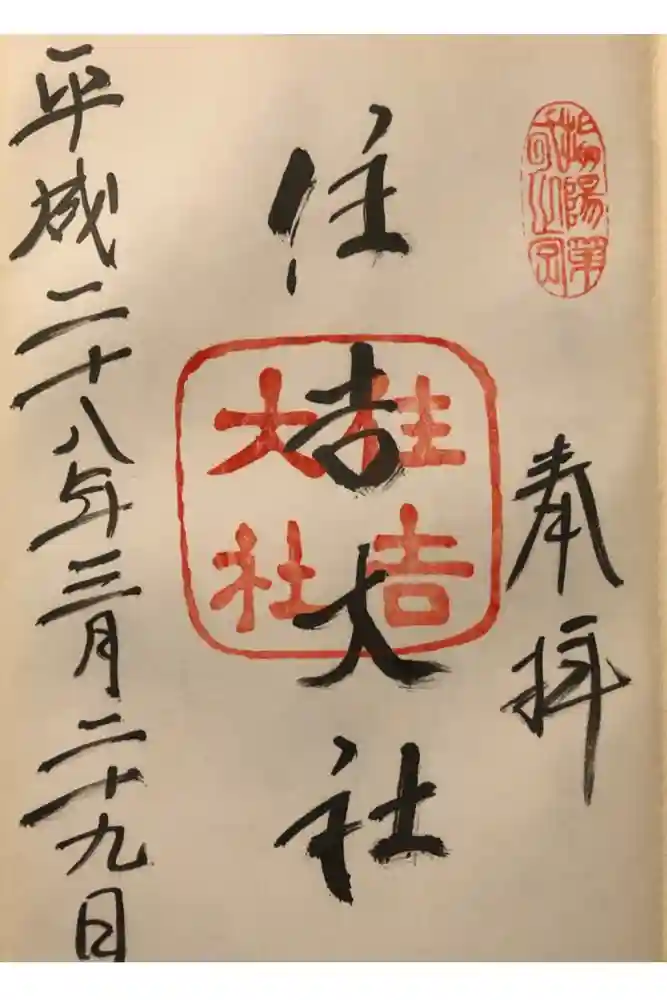 奉拝
住吉大社
住吉
大社
平成二十八年三月二十九日